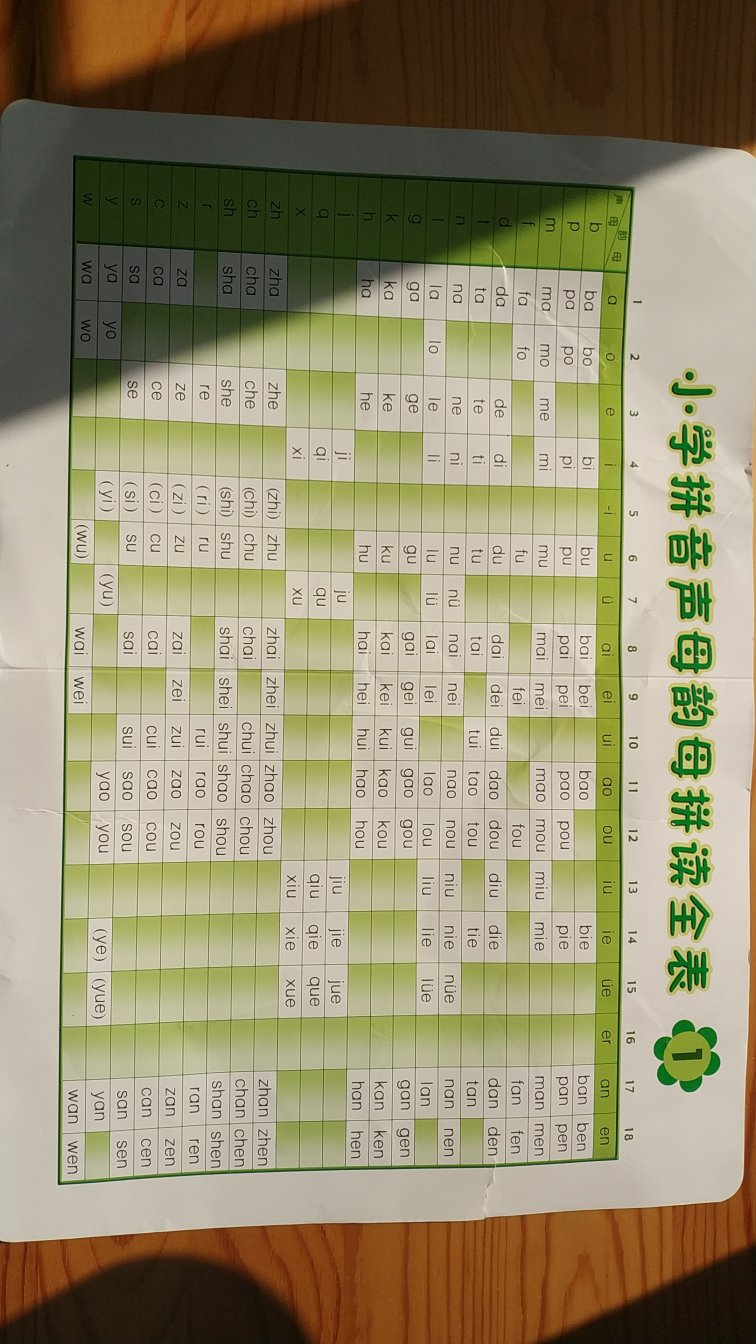 小学拼音声母韵母拼读全表 1
1 2 3 4 5 6 7 8 9 10 11 12 13 14 15 16 17 18
声母 韵母 a o e i -i u ü ai ei ui ao ou iu ie üe er an en
b ba bo bi bu bai bei bao bie ban ben
p pa po pi pu pai pei pao pou pie pan pen
m ma mo me mi mu mai mei mao mou miu mie man men
f fa fo fu fei fou fan fen
d da de di du dai dei dui dao dou diu die dan den
t ta te ti tu tai tui tao tou tie tan
n na ne ni nu nü nai nei nao nou niu nie nüe nan nen
l la lo le li lu lü lai lei lao lou liu lie lüe lan
g ga ge gu gai gei gui gao gou gan gen
k ka ke ku kai kei kui kao kou kan ken
h ha he hu hai hei hui hao hou han hen
j ji ju jiu jie jue
q qi qu qiu qie que
x xi xu xiu xie xue
zh zha zhe (zhi) zhu zhai zhei zhui zhao zhou zhan zhen
ch cha che (chi) chu chai chui chao chou chan chen
sh sha she (shi) shu shai shei shui shao shou shan shen
r re (ri) ru rui rao rou ran ren
z za ze (zi) zu zai zei zui zao zou zan zen
c ca ce (ci) cu cai cui cao cou can cen
s sa se (si) su sai sui sao sou san sen
y ya yo (yi) (yu) yao you (ye) (yue) yan
w wa wo (wu) wai wei wan wen